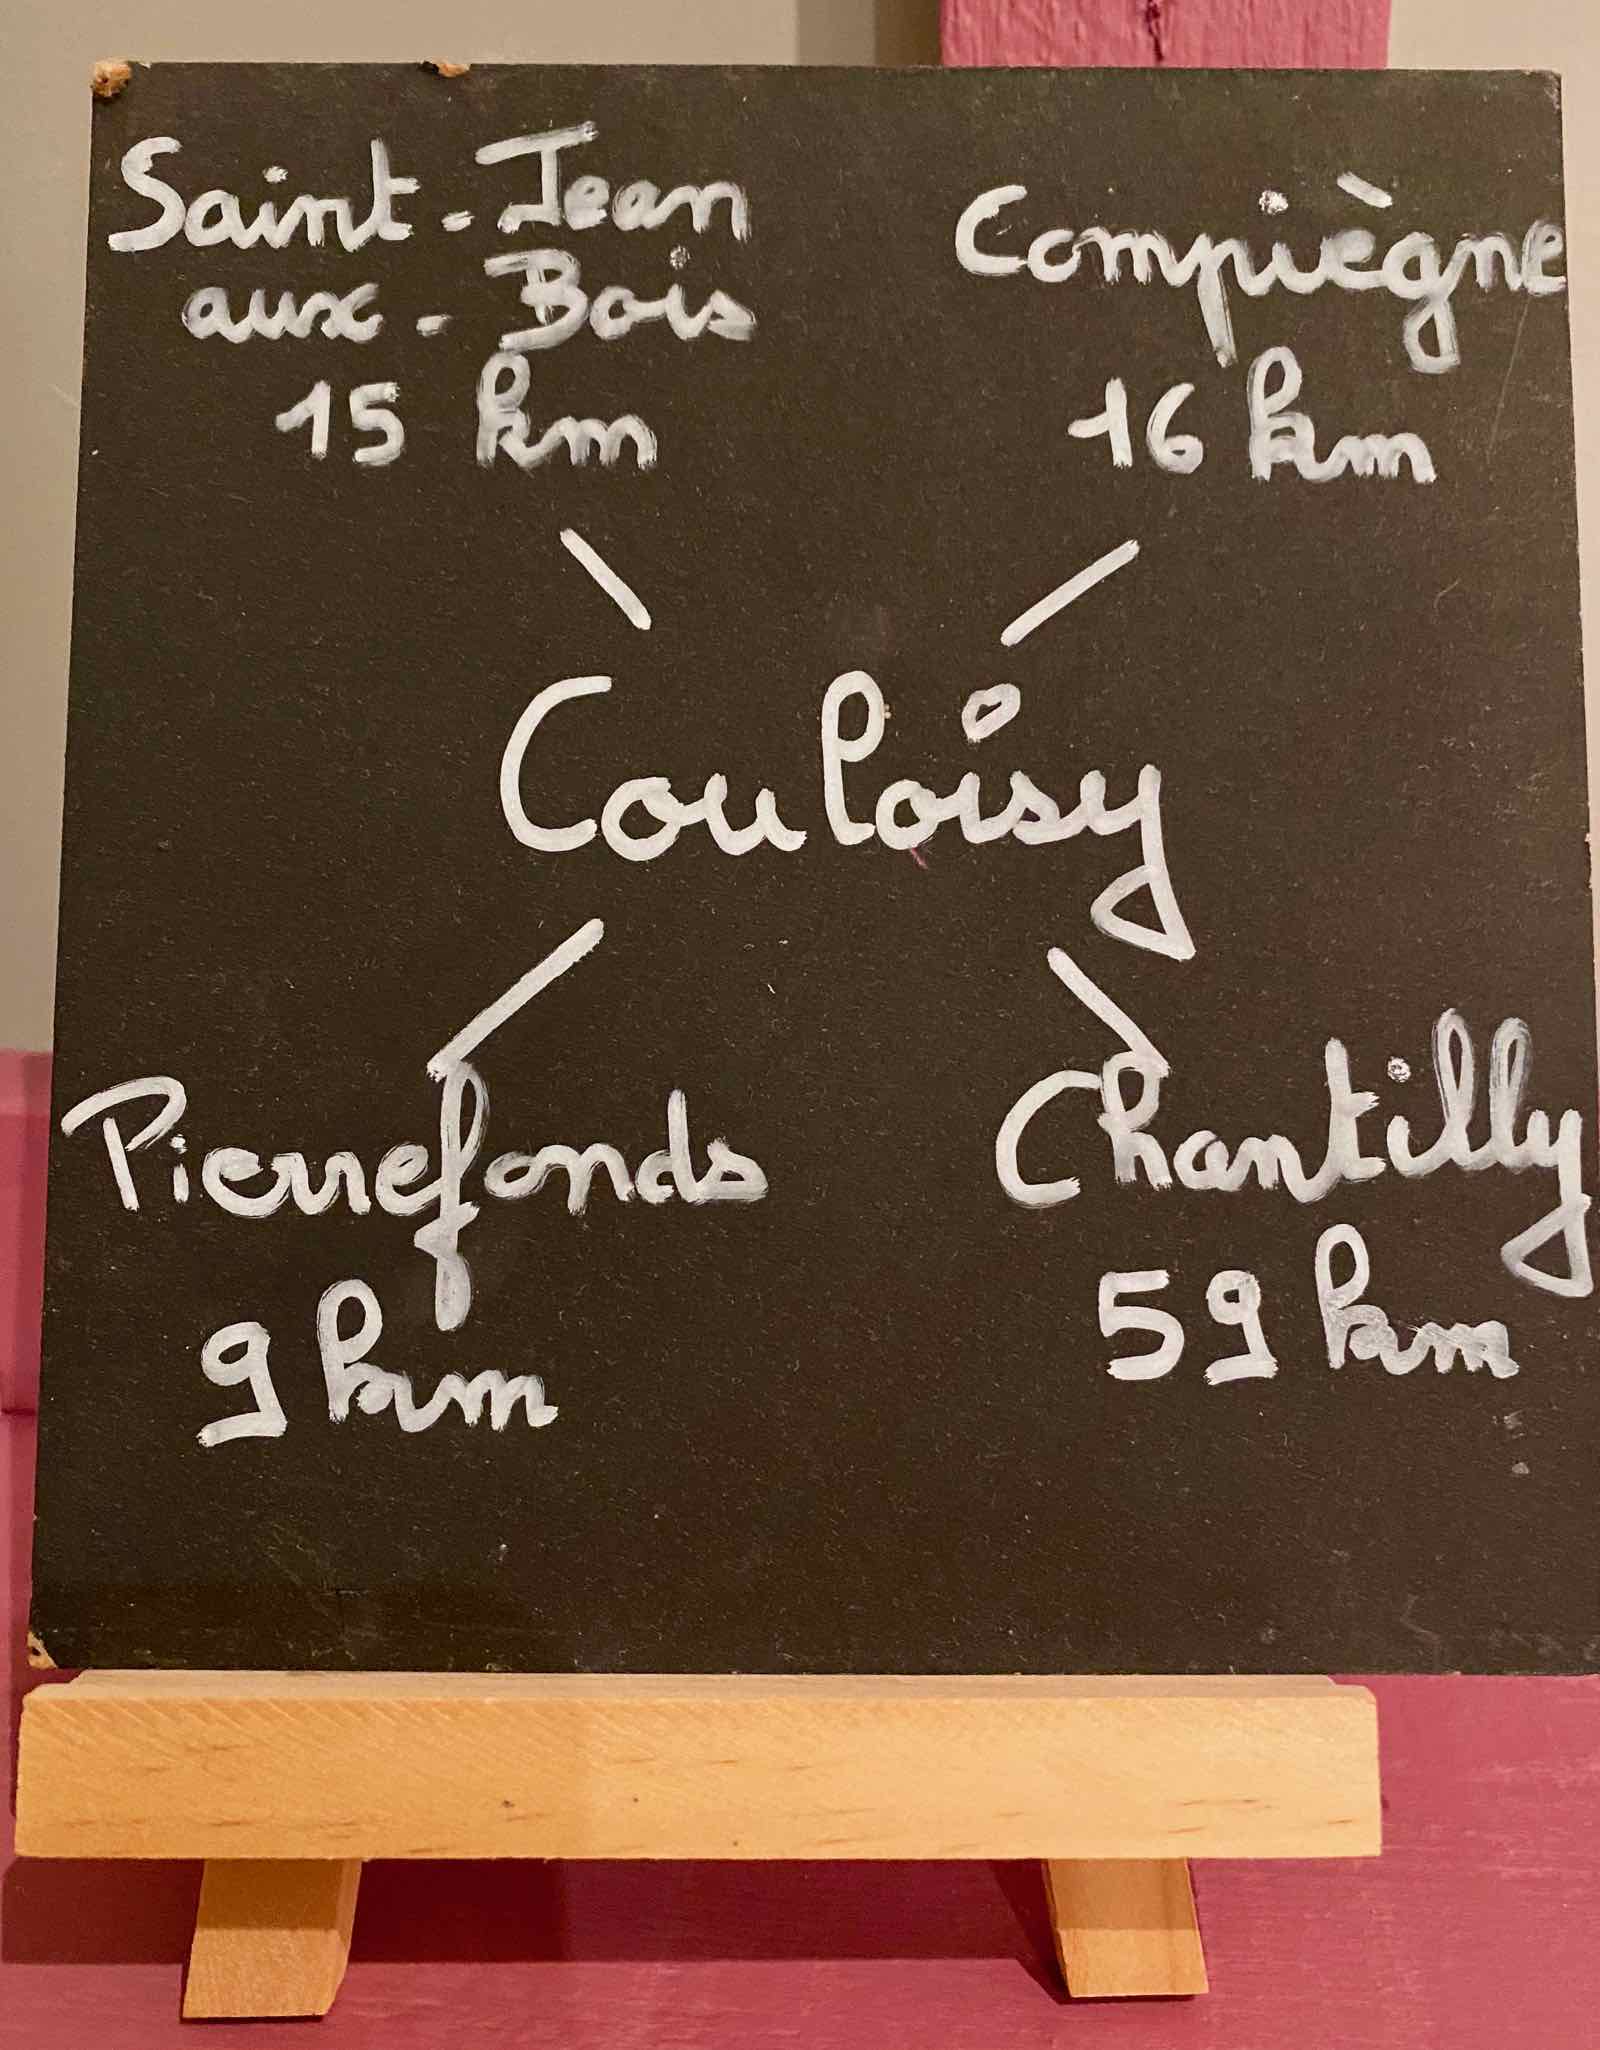 Saint-Jean
aux-Bois
15 km
Compiègne
16 km
Couloisy
Pierrefonds
9 km
Chantilly
59 km